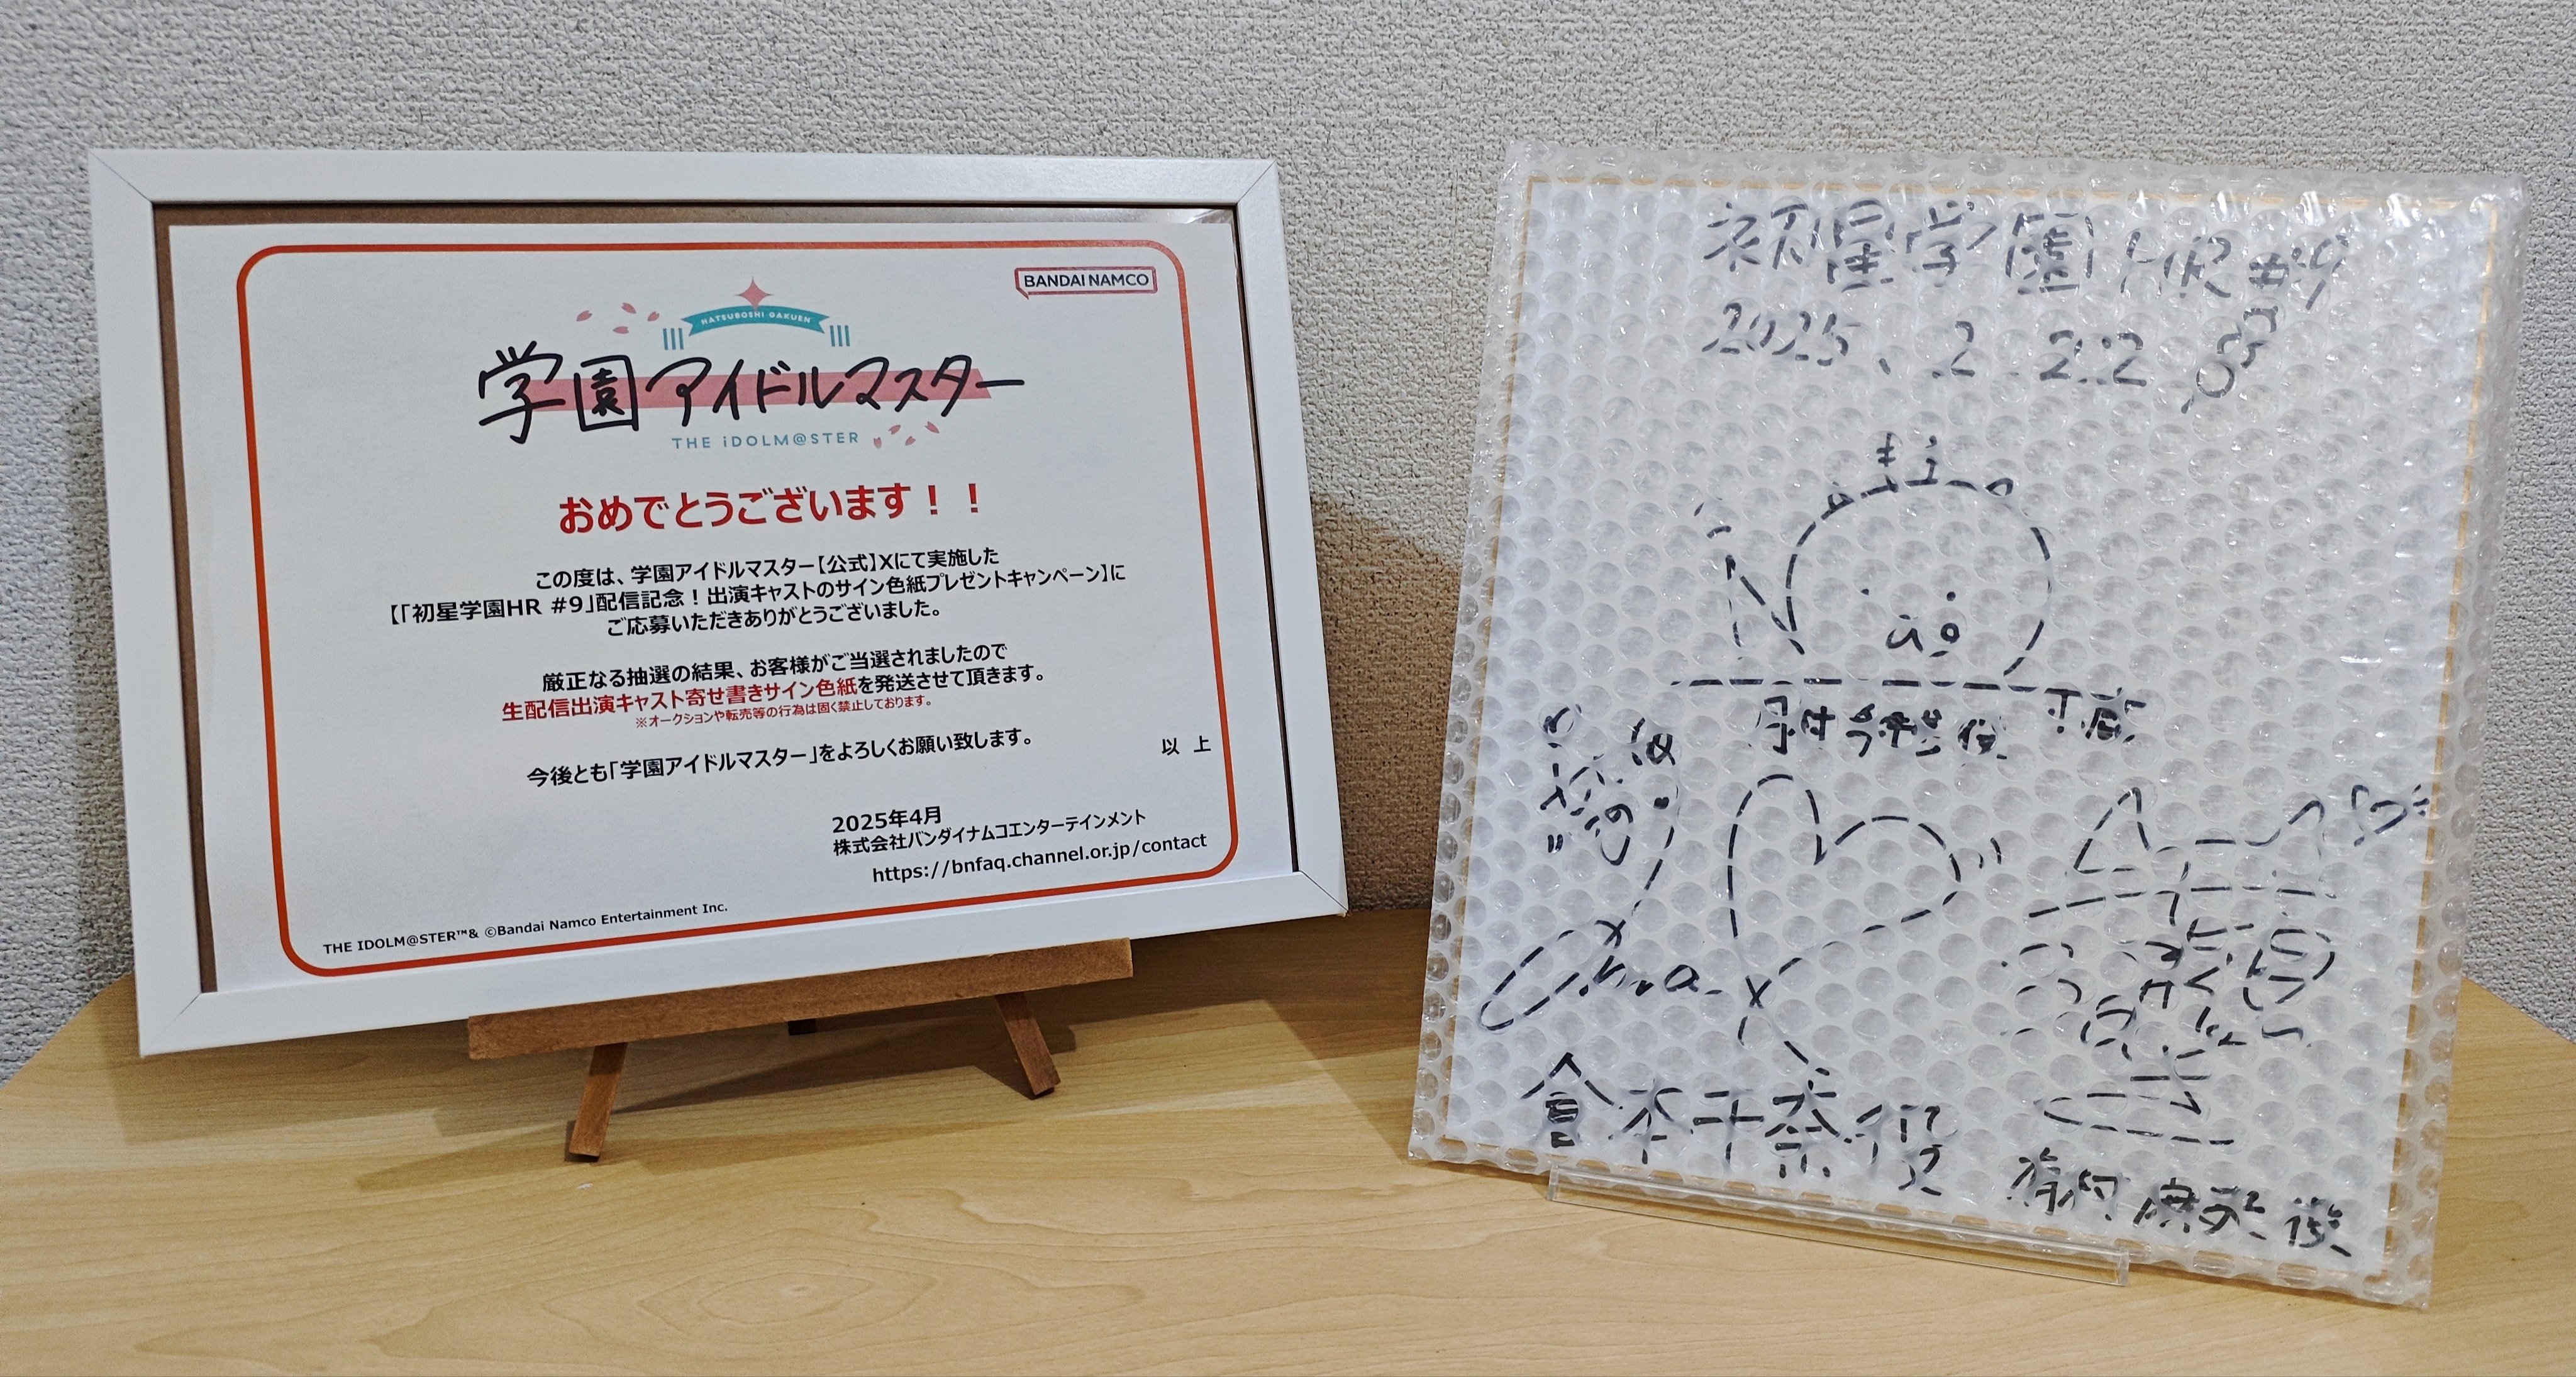 BANDAI NAMCO
HATSUBOSHI GAKUEN
学園アイドルマスター
THE iDOLM@STER
おめでとうございます！！
この度は、学園アイドルマスター【公式】Xにて実施した
【「初星学園HR #9」配信記念！出演キャストのサイン色紙プレゼントキャンペーン】に
ご応募いただきありがとうございました。
厳正なる抽選の結果、お客様がご当選されましたので
生配信出演キャスト寄せ書きサイン色紙を発送させて頂きます。
※オークションや転売等の行為は固く禁止しております。
今後とも「学園アイドルマスター」をよろしくお願い致します。
以 上
2025年4月
株式会社バンダイナムコエンターテインメント
https://bnfaq.channel.or.jp/contact
THE IDOLM@STER™& ©Bandai Namco Entertainment Inc.
初星学園HR #9
2025.2.22
月村手毬役
倉本千奈役
有村麻央役